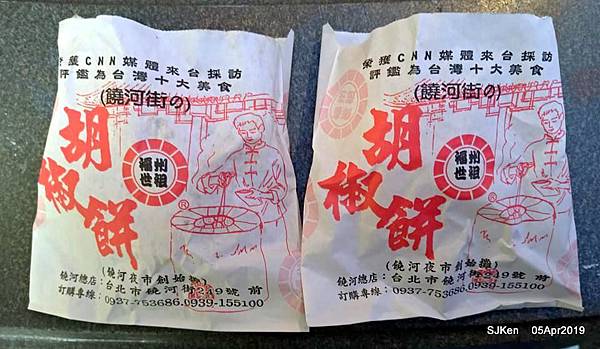 榮獲CNN媒體來台採訪
評鑑為台灣十大美食
(饒河街の)
胡椒餅
福州
世祖
®
(饒河夜市創始攤)
饒河總店：台北市饒河街249號 前
訂購專線：0937-753686.0939-155100
榮獲CNN媒體來台採訪
評鑑為台灣十大美食
(饒河街の)
胡椒餅
福州
世祖
®
(饒河夜市創始攤)
饒河總店：台北市饒河街249號 前
訂購專線：0937-753686.0939-155100
SJKen 05Apr2019